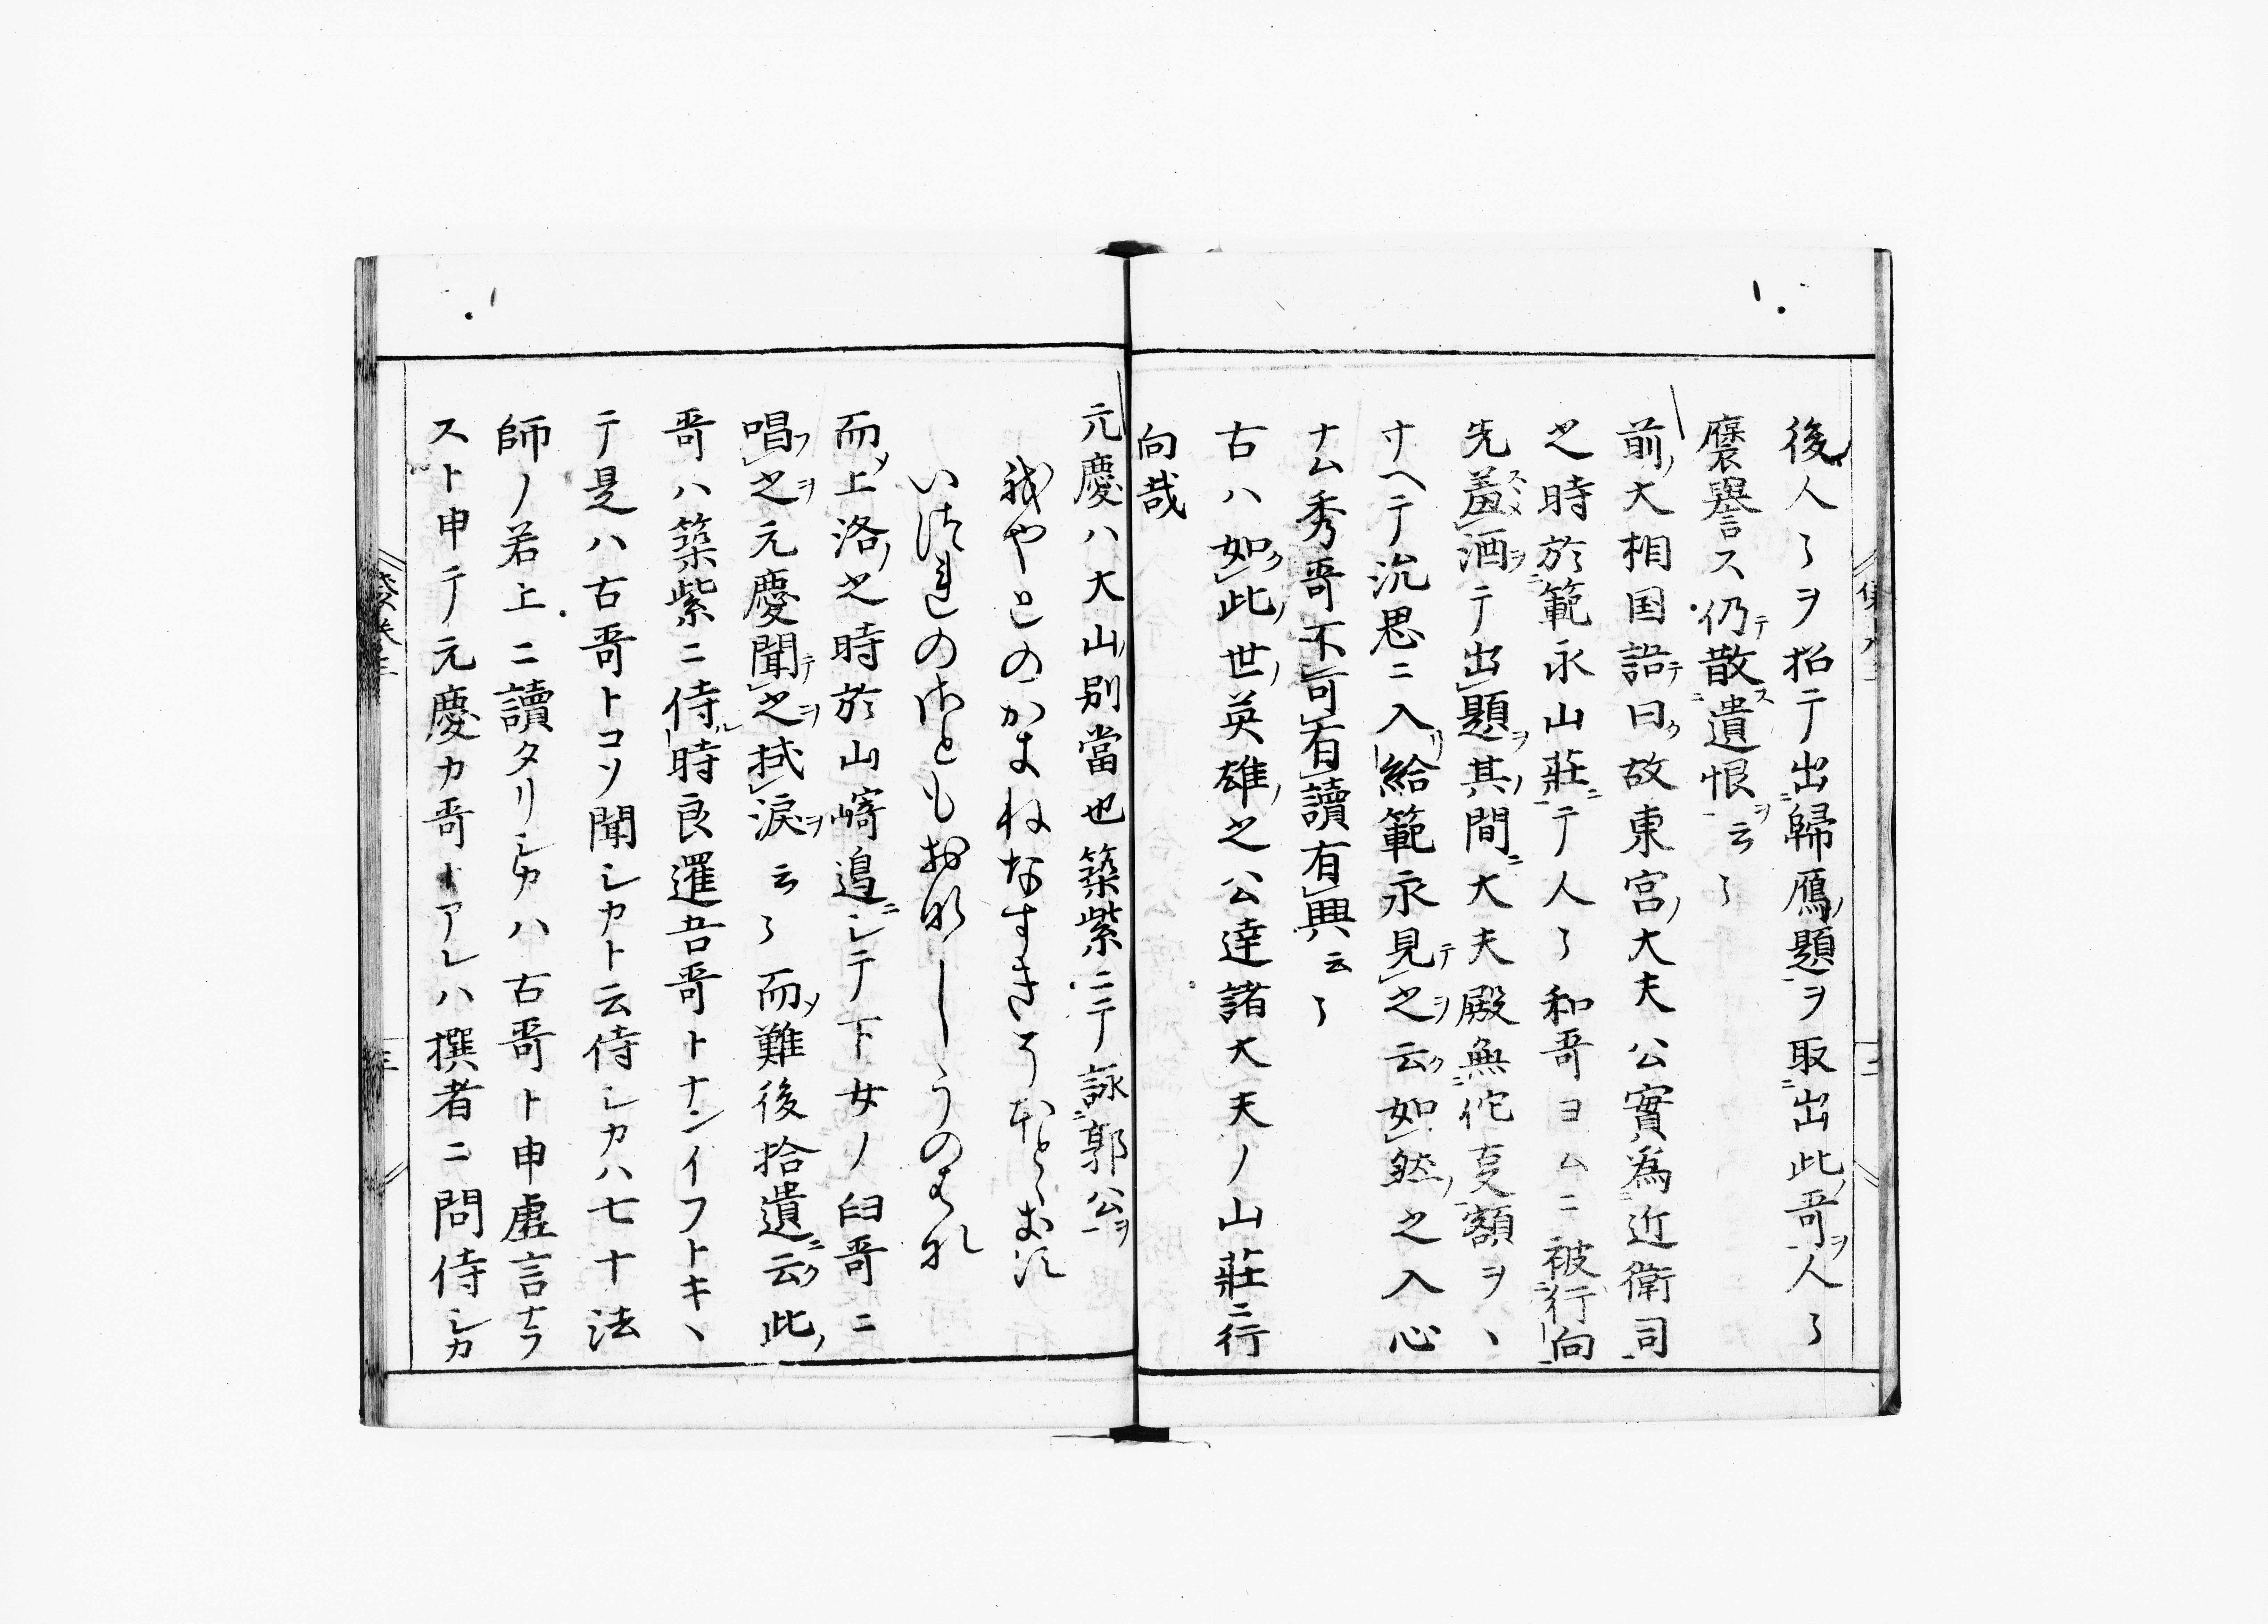 後人々ヲ招テ出帰鴈ノ題ヲ取出此ノ哥ヲ人々
褒誉ス仍テ散ス遺恨ヲ云々
前ノ大相国語テ曰ク故東宮ノ大夫公實為近衛司
之時於範永山庄ニテ人々和哥ヨムニ被行向
先羞スヽメ酒ヲテ出題ヲ其ノ間ニ大夫殿無佗支額ヲヽ
サヘテ沈思ニ入リ給範永見テ之ヲ云ク如然ノ之入心
ナム秀哥不可有讀有興云々
古ハ如ク此ノ世ノ英雄ノ之公達諸大夫ノ山庄ニ行
向哉
元慶ハ大山ノ別當也築紫ニテ詠郭公ヲ
我やとのかきねなすきそほとゝきす
いつれの里もおなしうのはな
而ノ上洛ノ之時於山﨑邉ニシテ下女ノ臼哥ニ
唱フ之ヲ元慶聞テ之ヲ拭涙ヲ云々而ノ難後拾遺ニ云ク此ノ
哥ハ築紫ニ侍ル時良暹吾哥トナンイフトキヽ
テ是ハ古哥トコソ聞シカト云侍シカハ七十法
師ノ若上ニ讀タリシカハ古哥ト申虚言ナラ
スト申テ元慶カ哥トアレハ撰者ニ問侍シカ